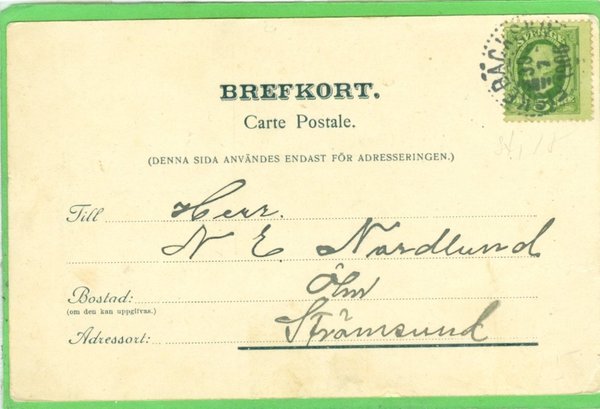 SVERIGE
BREFKORT.
Carte Postale.
(DENNA SIDA ANVÄNDES ENDAST FÖR ADRESSERINGEN.)
Till Herr.
N E Nordlund
Bostad:
(om den kan uppgifvas.)
Adressort: Strömsund